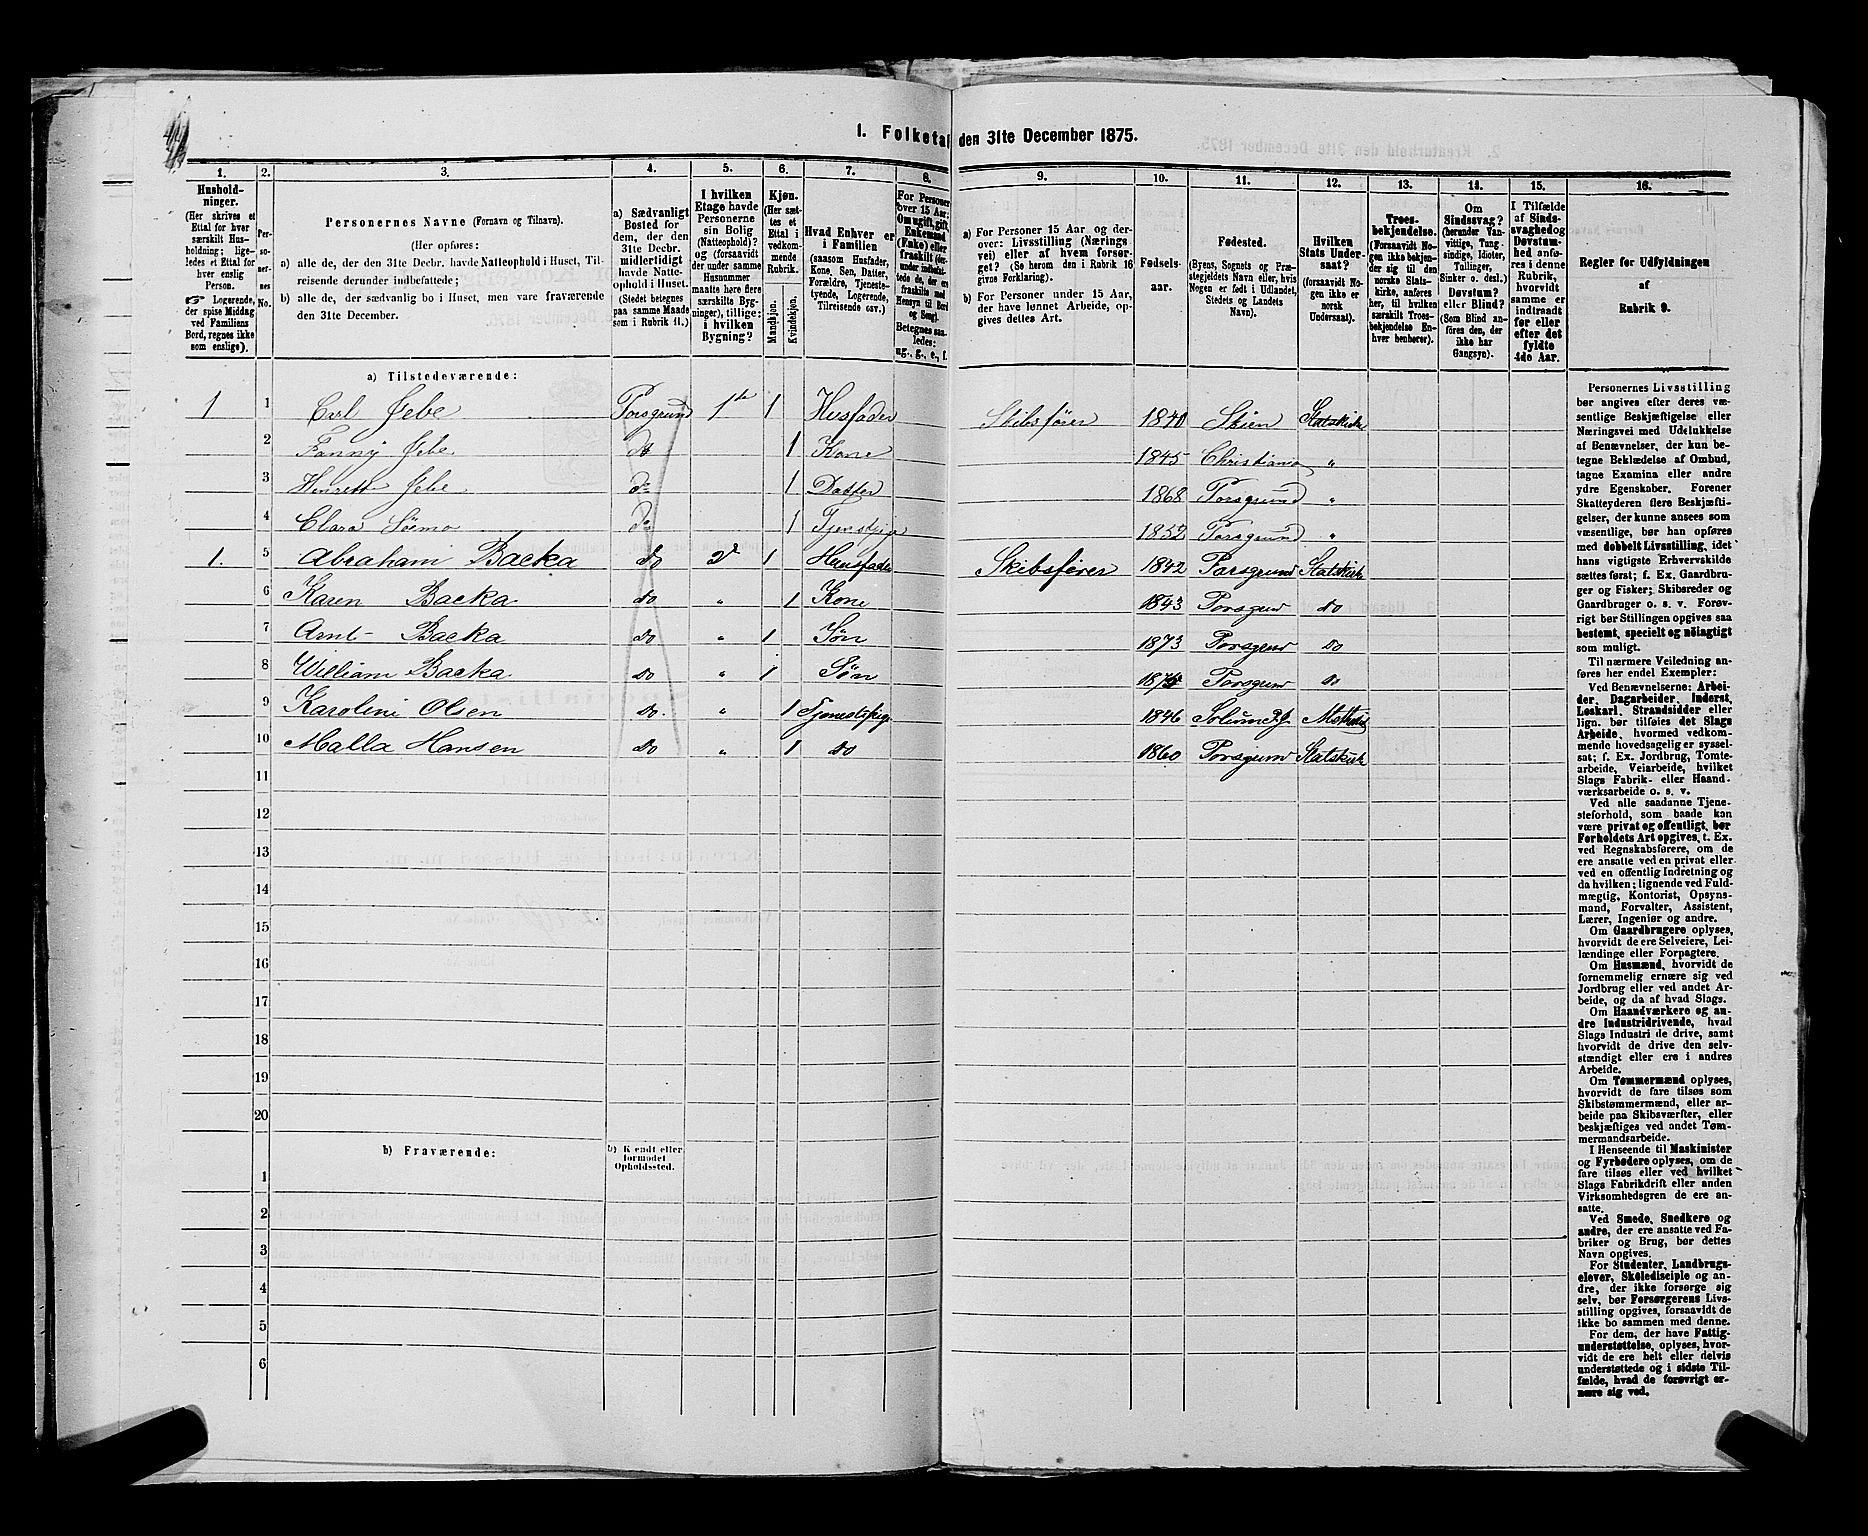 1. Folketal den 31te December 1875.
1. 2. 3. 4. 5. 6. 7. 8. 9. 10. 11. 12. 13. 14. 15. 16.
Hushold-
ninger.
(Her skrives et
Ettal for hver
særskilt Hus-
holdning; lige-
ledes et Ettal for
hver enslig
Person.
☞ Logerende,
der spise Middag
ved Familiens
Bord, regnes ikke
som enslige).
Per-
so-
ner-
nes
No.
Personernes Navne (Fornavn og Tilnavn).
(Her opføres:
a) alle de, der den 31te Decbr. havde Natteophold i Huset, Til-
reisende derunder indbefattede;
b) alle de, der sædvanlig bo i Huset, men vare fraværende
den 31te December.
a) Sædvanligt
Bosted for
dem, der den
31te Decbr.
midlertidigt
havde Natte-
ophold i Huset.
(Stedet betegnes
paa samme Maade
som i Rubrik 11.)
I hvilken
Etage havde
Personerne
sin Bolig
(Natteophold)?
og (forsaavidt
der under samme
Husnummer
maatte høre flere
særskilte Byg-
ninger), tillige:
i hvilken
Bygning?
Kjøn.
(Her sæt-
tes et
Ettal i
vedkom-
mende
Rubrik.
Mandkjøn.
Kvindekjøn.
Hvad Enhver er
i Familien
(saasom Husfader,
Kone, Søn, Datter,
Forældre, Tjeneste-
tyende, Logerende,
Tilreisende osv.)
For Personer
over 15 Aar:
Om ugift, gift,
Enkemand
(Enke) eller
fraskilt (der-
under indbefat-
tede de, der ere
fraskilte med
Hensyn til Bord
og Seng).
Betegnes saa-
ledes:
ug., g., e., f.
a) For Personer 15 Aar og der-
over: Livsstilling (Nærings
vei) eller af hvem forsør-
get? (Se herom den i Rubrik 16
givne Forklaring).
b) For Personer under 15 Aar,
der have lønnet Arbeide, op-
gives dettes Art.
Fødsels-
aar.
Fødested.
(Byens, Sognets og Præ-
stegjeldets Navn eller, hvis
Nogen er født i Udlandet,
Stedets og Landets
Navn).
Hvilken
Stats Under-
saat?
(forsaavidt No-
gen ikke er
norsk
Undersaat).
Troes-
bekjendelse.
(Forsaavidt No-
gen ikke bekjen-
der sig til den
norske Stats-
kirke, anføres
her, til hvilken
særskilt Troes-
bekjendelse En-
hver henhører).
Om
Sindssvag?
(herunder Van-
vittige, Tung-
sindige, Idioter,
Tullinger,
Sinker o. desl.)
Døvstum?
eller Blind?
(Som Blind an-
føres den, der
ikke har
Gangsyn).
I Tilfælde
af Sinds-
svaghed og
Døvstum-
hed anfø-
res i denne
Rubrik,
hvorvidt
samme er
indtraadt
før eller
efter det
fyldte
4de Aar.
Regler for Udfyldningen
af
Rubrik 9.
a) Tilstedeværende:
1 1 Carl Jebe Porsgrund 1te 1 Husfader Skibsfører 1840 Skien Statskirke
2 Fanny Jebe do 1 Kone 1845 Christiania "
3 Henrette Jebe do 1 Datter 1868 Porsgrund "
4 Clara do 1 1852 Porsgrund "
1. 5 Abraham Backa do 2d 1 Huusfader Skibsfører 1842 Porsgrund Statskirk
6 Karen Backa do " 1 Kone 1843 Porsgrund do
7 Arnt Backa do " 1 Søn 1873 Porsgrund do
8 William Backa do " 1 Søn 1875 Porsgrund do
9 Karoline Olsen do. " 1 Tjenestepige 1846 Solum Pgj.
10 Malla Hansen do " 1 do 1860 Porsgrund Statskirk
11
12
13
14
15
16
17
18
19
20
b) Fraværende:
b) Kjendt eller
formodet
Opholdssted.
1
2
3
4
5
6
Personernes Livsstilling
bør angives efter deres væ-
sentlige Beskjæftigelse eller
Næringsvei med Udelukkelse
af Benævnelser, der kun be-
tegne Beklædelse af Ombud,
tagne Examina eller andre
ydre Egenskaber. Forener
Skatteyderen flere Beskjæfti-
gelser, der kunne ansees som
væsentlige, bør han opføres
med dobbelt Livsstilling, idet
hans vigtigste Erhvervskilde
sættes først; f. Ex. Gaardbru-
ger og Fisker; Skibsreder og
Gaardbruger o. s. v. Forøv-
rigt bør Stillingen opgives saa
bestemt, specielt og nöiagtigt
som muligt.
Til nærmere Veiledning an-
føres her endel Exempler:
Ved Benævnelserne: Arbei-
der, Dagarbeider, Inderst,
Løskarl, Strandsidder eller
lign. bør tilføies det Slags
Arbeide, hvormed vedkom-
mende hovedsagelig er syssel-
sat; f. Ex. Jordbrug, Tomte-
arbeide, Veiarbeide, hvilket
Slags Fabrik- eller Haand-
værksarbeide o. s. v.
Ved alle saadanne Tjene-
steforhold, som baade kan
være privat og offentligt, bør
Forholdets Art opgives, t. Ex.
ved Regnskabsførere, om de
ere ansatte ved en privat eller
ved en offentlig Indretning og
da hvilken; lignende ved Fuld-
mægtig, Kontorist, Opsyns-
mand, Forvalter, Assistent,
Lærer, Ingeniør og andre.
Om Gaardbrugere oplyses,
hvorvidt de ere Selveiere, Lei-
lændinge eller Forpagtere.
Om Husmænd, hvorvidt de
fornemmelig ernære sig ved
Jordbrug eller ved andet Ar-
beide, og da af hvad Slags.
Om Haandværkere og an-
dre Industridrivende, hvad
Slags Industri de drive, samt
hvorvidt de drive den selv-
stændigt eller ere i andres
Arbeide.
Om Tømmermænd oplyses,
hvorvidt de fare tilsøs som
Skibstømmermænd, eller ar-
beide paa Skibsværfter, eller
beskjæftiges ved andet Tøm-
mermandsarbeide.
I Henseende til Maskinister
og Fyrbødere oplyses, om de
fare tilsøs eller ved hvilket
Slags Fabrikdrift eller anden
Virksomhedsgren de ere an-
satte.
Ved Smede, Snedkere og
andre, der ere ansatte ved Fa-
briker og Brug, bør dettes
Navn opgives.
For Studenter, Landbrugs-
elever, Skoledisciple og an-
dre, der ikke forsørge sig
selv, bør Forsørgerens Livs-
stilling opgives, forsaavidt de
ikke bo sammen med denne.
For dem, der have Fattig-
understøttelse, oplyses, hvor-
vidt de ere helt eller delvis
understøttede og i sidste Til-
fælde, hvad de forøvrigt er-
nære sig ved.